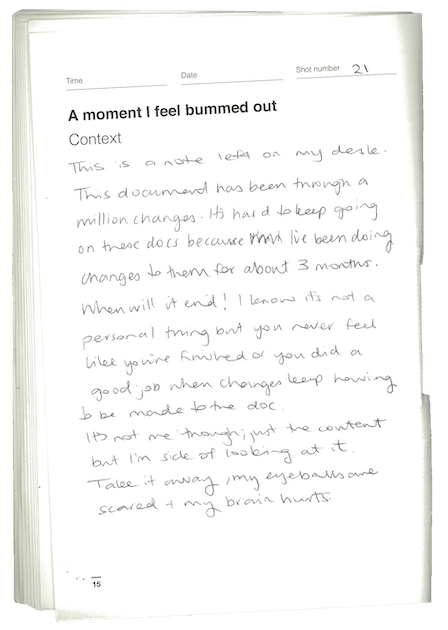 Time
Date
Shot number 21
A moment I feel bummed out
Context
This is a note left on my desk.
This document has been through a
million changes. It's hard to keep going
on these docs because I've been doing
changes to them for about 3 months.
When will it end! I know it's not a
personal thing but you never feel
like you're finished or you did a
good job when changes keep having
to be made to the doc.
It's not me though; just the content
but I'm sick of looking at it.
Take it away, my eyeballs are
scared + my brain hurts.
15